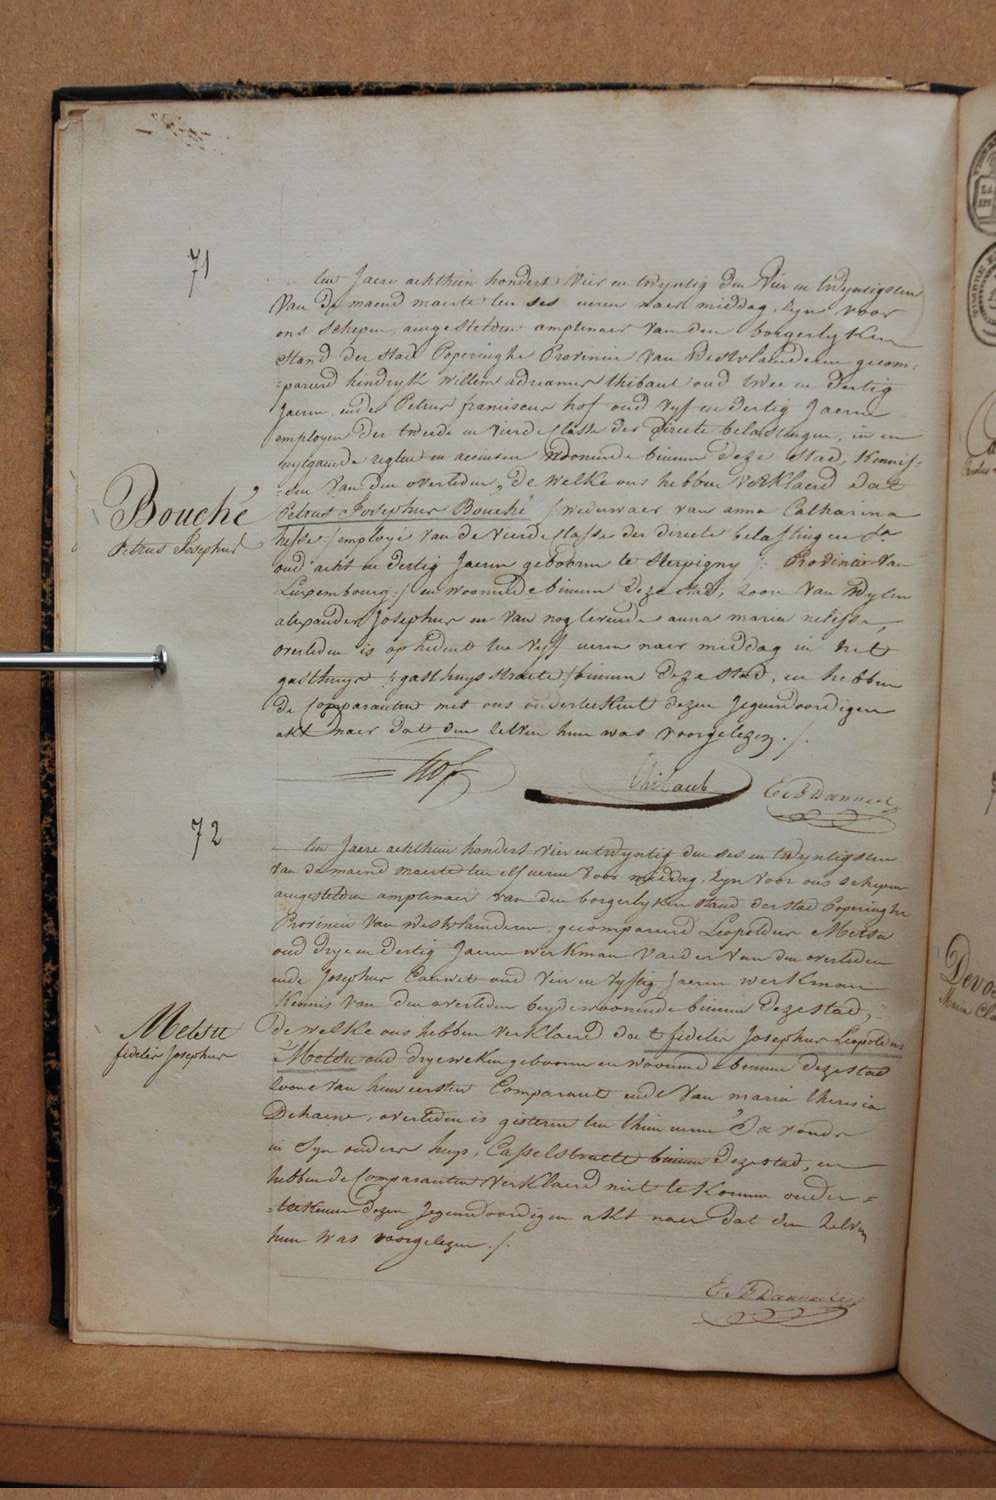 71
ten Jaere achthien hondert Vier en twyntig den Vier en twyntigsten
Van de maend maerte ten ses uren naer middag, Zyn voor
ons schepen aengestelden amptenaer van den borgerlyken
Stand der Stad Poperinghe Provincie van Westvlaenderen gecom-
-pareerd hindryk willem adrianus thibaut oud twee en dertig
Jaeren, ende Petrus franciscus hof oud vyf en dertig Jaeren
employen der tweede en vierde classe der directe belastingen, in en
uytgaende regten en accinsen Woonende binnen deze Stad, Kennis-
-sen Van den overleden, de welke ons hebben verklaerd dat
Bouché
Petrus Josephus
Petrus Josephus Bouché /weduwaer van anna Catharina
/employé van de vierde classe der directe belastingen
oud acht en dertig Jaeren geboorn te Sterpigny /: Provincie Van
Luxembourg :/ en woonende binnen deze Stad, Zoon Van Wylen
alexander Josephus en van nog levende anna maria
overleden is op hedent ten vyf uren naer middag in het
gasthuys /gasthuys straete/ binnen deze Stad, en hebben
de Comparanten met ons onderteekent dezen Jegenwoordigen
akt naer dat den Zelven hun was voorgelezen ./.
Hof
Thibaut
72
ten Jaere achthien hondert vier en twyntig den ses en twyntigsten
van de maend maerte ten elf uren voor middag, Zyn voor ons schepen
aengestelden amptenaer van den borgerlyken stand der stad Poperinghe
Provincie Van westvlaenderen, gecompareerd Leopoldus Metsu
oud drye en dertig Jaeren werkman Vaeder Van den overleden
ende Josephus Cauwet oud vier en vyftig Jaeren werkman
Kennis van den overleden beyde woonende binnen deze stad,
Metsu
fidelis Josephus
de welke ons hebben verklaerd dat fidelis Josephus Leopoldus
Metsu oud drye weken geboorn en woonende binnen deze stad
Zoone van hun eersten Comparant ende Van maria theresia
Dehaene, overleden is gisteren ten thien uren S'avonds
in Syn ouders huys, Casselstraete binnen deze stad, en
hebben de Comparanten verklaerd niet te Konnen onder-
-teekenen dezen Jegenwoordigen akt naer dat den Zelven
hun was voorgelezen ./.